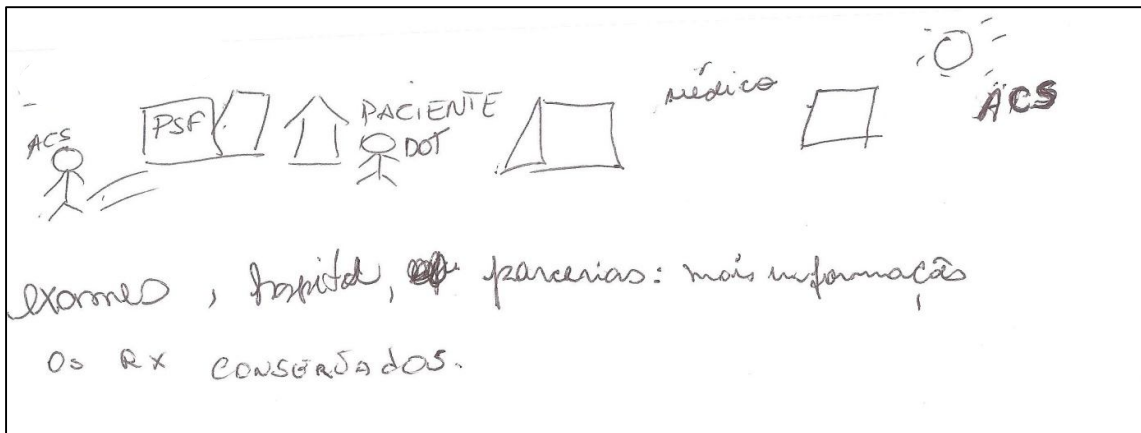 ACS
PSF
PACIENTE
DOT
médico
ACS
exames, hospital, parcerias: mais informação
Os RX CONSERVADOS.